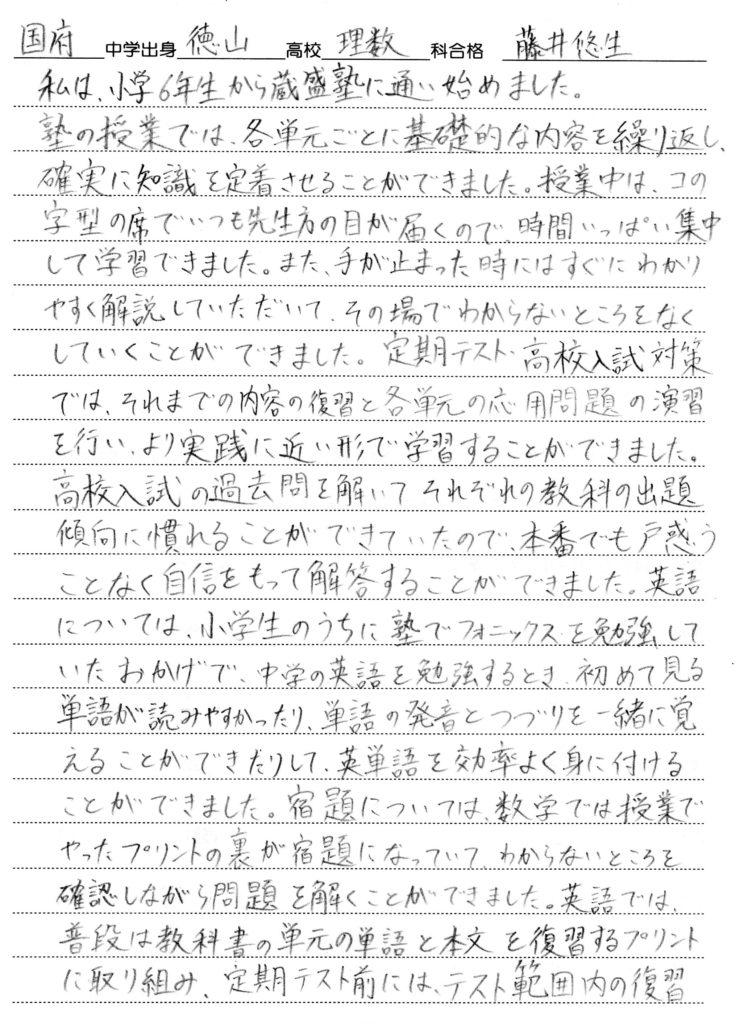 国府 中学出身 徳山 高校 理数 科合格 藤井悠生
私は、小学6年生から蔵盛塾に通い始めました。
塾の授業では、各単元ごとに基礎的な内容を繰り返し、
確実に知識を定着させることができました。授業中は、コの
字型の席でいつも先生方の目が届くので、時間いっぱい集中
して学習できました。また、手が止まった時にはすぐにわかり
やすく解説していただいて、その場でわからないところをなく
していくことができました。定期テスト・高校入試対策
では、それまでの内容の復習と各単元の応用問題の演習
を行い、より実践に近い形で学習することができました。
高校入試の過去問を解いてそれぞれの教科の出題
傾向に慣れることができていたので、本番でも戸惑う
ことなく自信をもって解答することができました。英語
については、小学生のうちに塾でフォニックスを勉強して
いたおかげで、中学の英語を勉強するとき、初めて見る
単語が読みやすかったり、単語の発音とつづりを一緒に覚
えることができだりして、英単語を効率よく身に付ける
ことができました。宿題については、数学では授業で
やったプリントの裏が宿題になっていて、わからないところを
確認しながら問題を解くことができました。英語では、
普段は教科書の単元の単語と本文を復習するプリント
に取り組み、定期テスト前には、テスト範囲内の復習